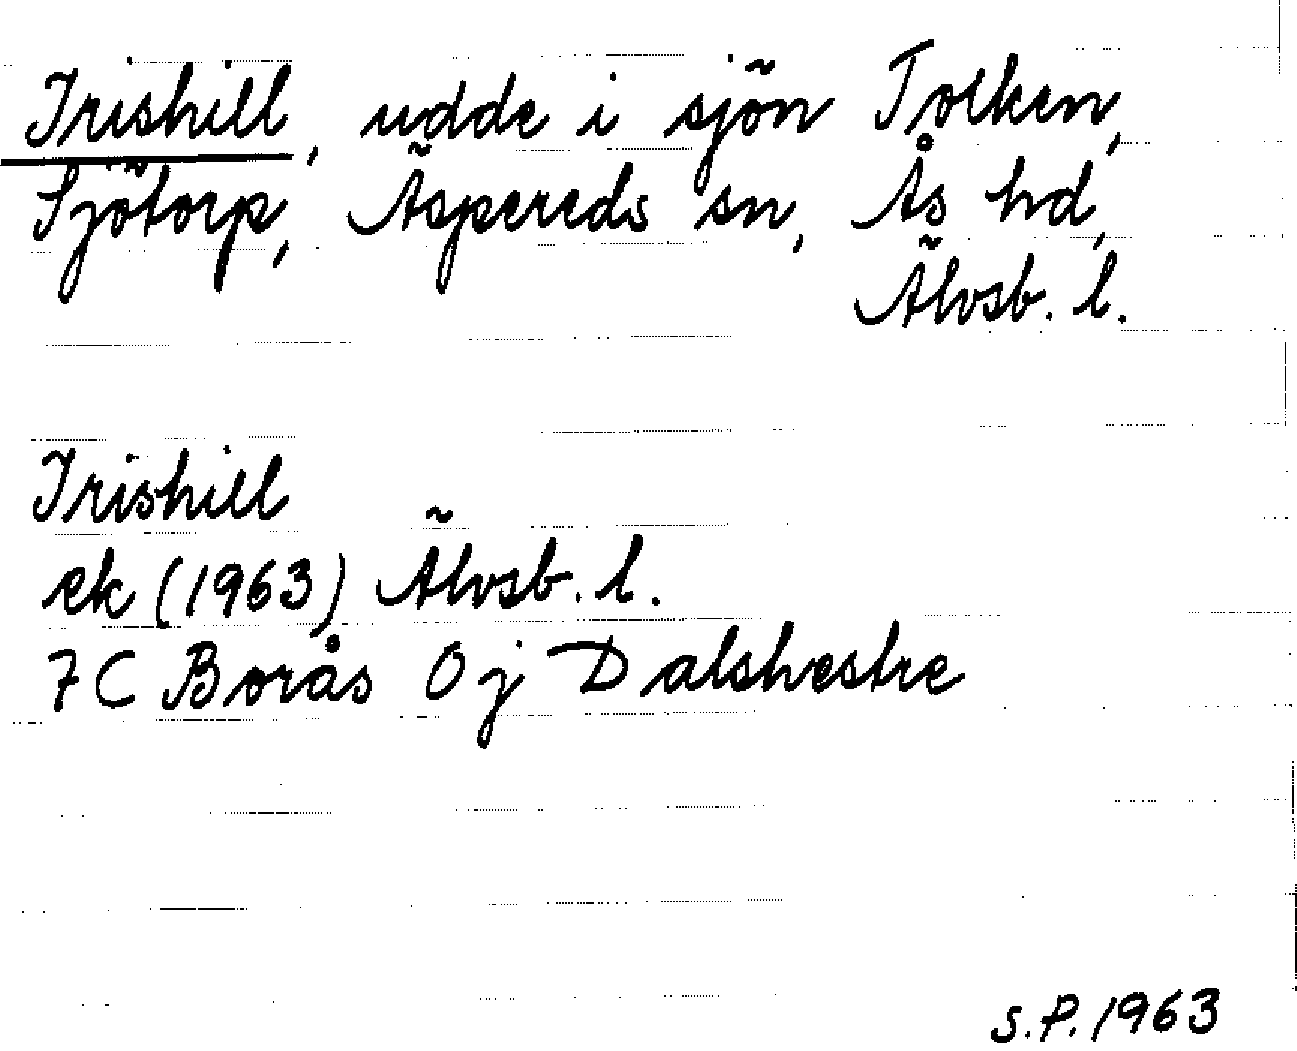 Irishill, udde i sjön Tolken,
Sjötorp, Äspereds sn, Ås hd,
Älvsb. l.
Irishill
ek (1963) Älvsb. l.
7C Borås 0j Dalshestre
S.P. 1963